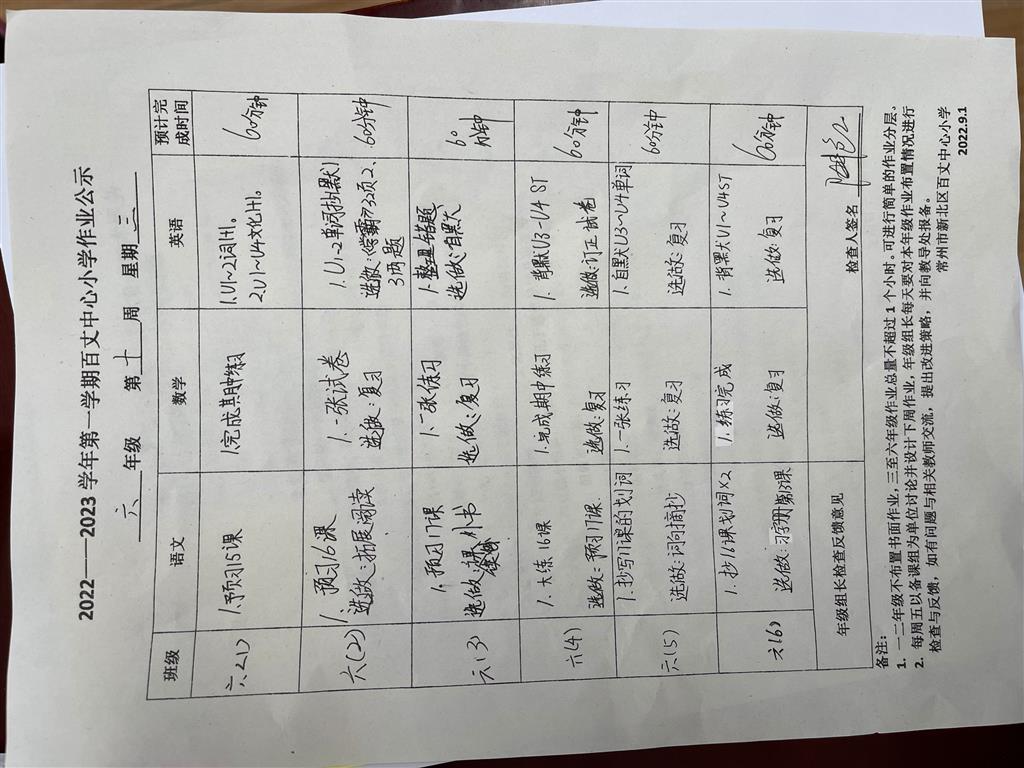 2022——2023 学年第一学期百丈中心小学作业公示
六 年级 第 十 周 星期 三
班级 语文 数学 英语 预计完成时间
六(1) 1.预习15课 1.完成其中练习 1.U1~2词汇。 60分钟
2.U1~U4文化汇。
六(2) 1.预习16课 1.一张试卷 1.U1~2单词批默 60分钟
选做:拓展阅读 选做:复习 选做:学霸P32项2、
3两题
六(3) 1.预习17课 1.一张练习 1.整里错题 60分钟
选做:课外书 选做:复习 选做:自默
六(4) 1.大练16课 1.完成期中练习 1.背默U3~U4 ST 60分钟
选做:预习17课. 选做:复习 选做:订正试卷
六(5) 1.抄写17课的划词 1.一张练习 1.自默U3~U4单词 60分钟
选做:词句摘抄 选做:复习 选做:复习
六(6) 1.抄16课划词×2 1.练习完成 1.背默U1~U4ST 60分钟
选做:习字册第13课 选做:复习 选做:复习
年级组长检查反馈意见 检查人签名
备注:
1. 一二年级不布置书面作业,三至六年级作业总量不超过 1 个小时。可进行简单的作业分层。
2. 每周五以备课组为单位讨论并设计下周作业,年级组长每天要对本年级作业布置情况进行
检查与反馈,如有问题与相关教师交流,提出改进策略,并向教导处报备。
常州市新北区百丈中心小学
2022.9.1